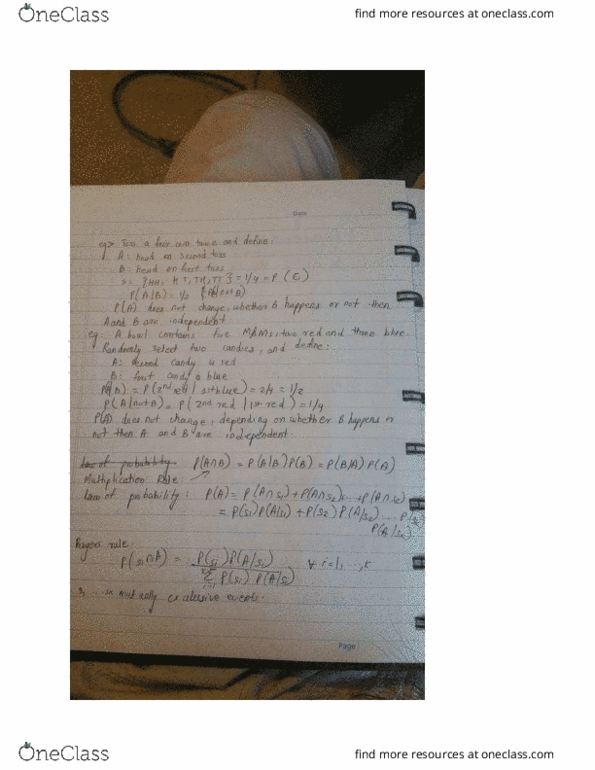 OneClass
find more resources at oneclass.com
Date
eg> Toss a fair coin twice and define:
A: head on second toss
B: head on first toss
S: {HH, HT, TH, TT} = 1/4 = P(E)
P(A|B) = 1/2
P(A) does not change, whether B happens or not then
A and B are independent
eg. A bowl contains five M&Ms, two red and three blue.
Randomly select two candies, and define:-
A: second candy is red
B: first candy is blue
P(A|B) = P(2nd red | 1st blue) = 2/4 = 1/2
P(A|not B) = P(2nd red | 1st red) = 1/4
P(A) does not change, depending on whether B happens or
not then A and B are independent.
Law of probability
P(A∩B) = P(A|B)P(B) = P(B|A)P(A)
Multiplication Rule:
Law of probability: P(A) = P(A∩S1) + P(A∩S2) ... + P(A∩Sk)
= P(S1)P(A|S1) + P(S2)P(A|S2) ... P
P(A|Sk)
Bayes rule
P(Si∩A) = P(Si)P(A|Si) ∀ i=1, ..., k
Σ P(Si) P(A|Si)
mutually exclusive events.
Page
OneClass
find more resources at oneclass.com